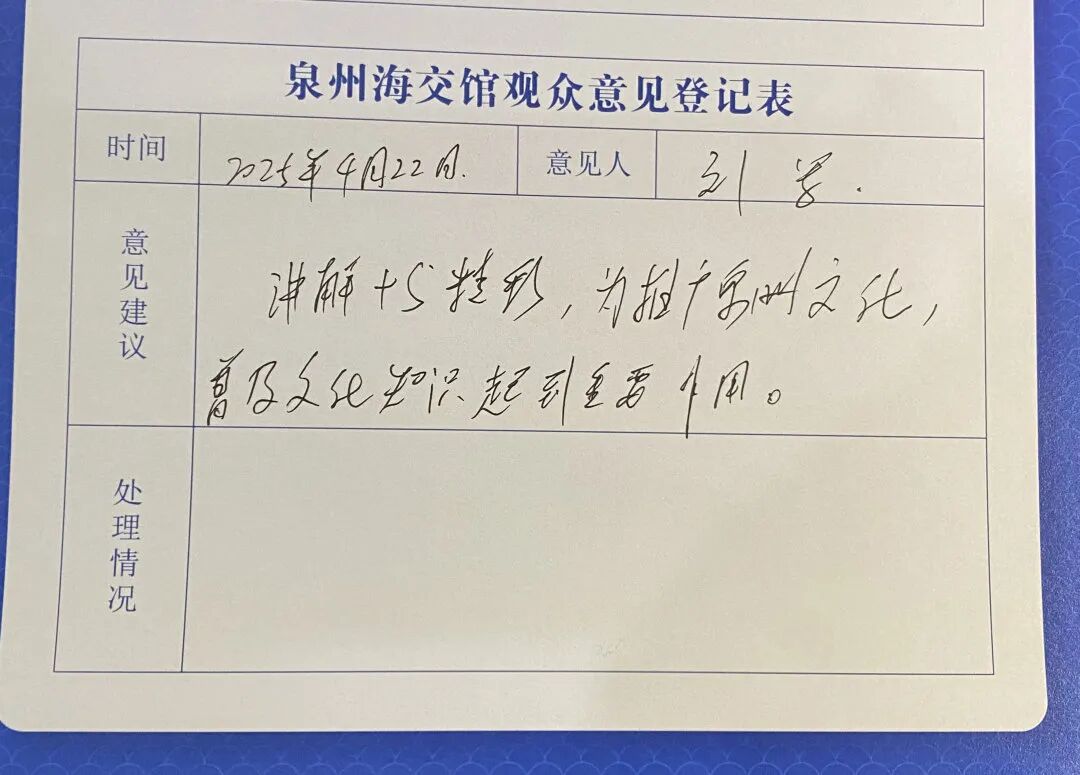 泉州海交馆观众意见登记表
时间 2025年4月22日. 意见人 刘
意见建议
讲解十分精彩，为推广泉州文化，
普及文化知识起到重要作用。
处理情况